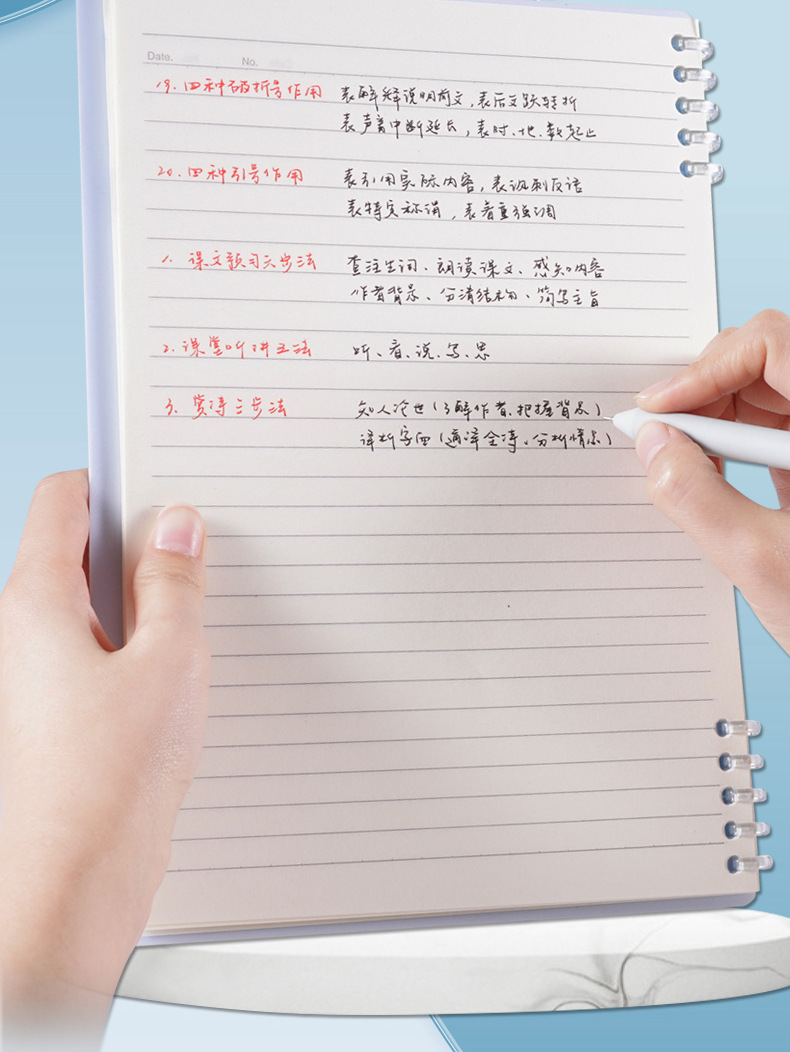 Date. No.
19. 四种破折号作用 表解释说明前文,表后文跃转折
表声音中断延长,表时、地、数起止
20. 四种引号作用 表引用实际内容,表讽刺反语
表特定称谓,表着重强调
1. 课文预习六步法 查注生词、朗读课文、感知内容
作者背景、分清结构、简写主旨
2. 课堂听讲五法 听、看、说、写、思
3. 赏诗三步法 知人论世(了解作者、把握背景)
译析字面(通译全诗、分析情景)